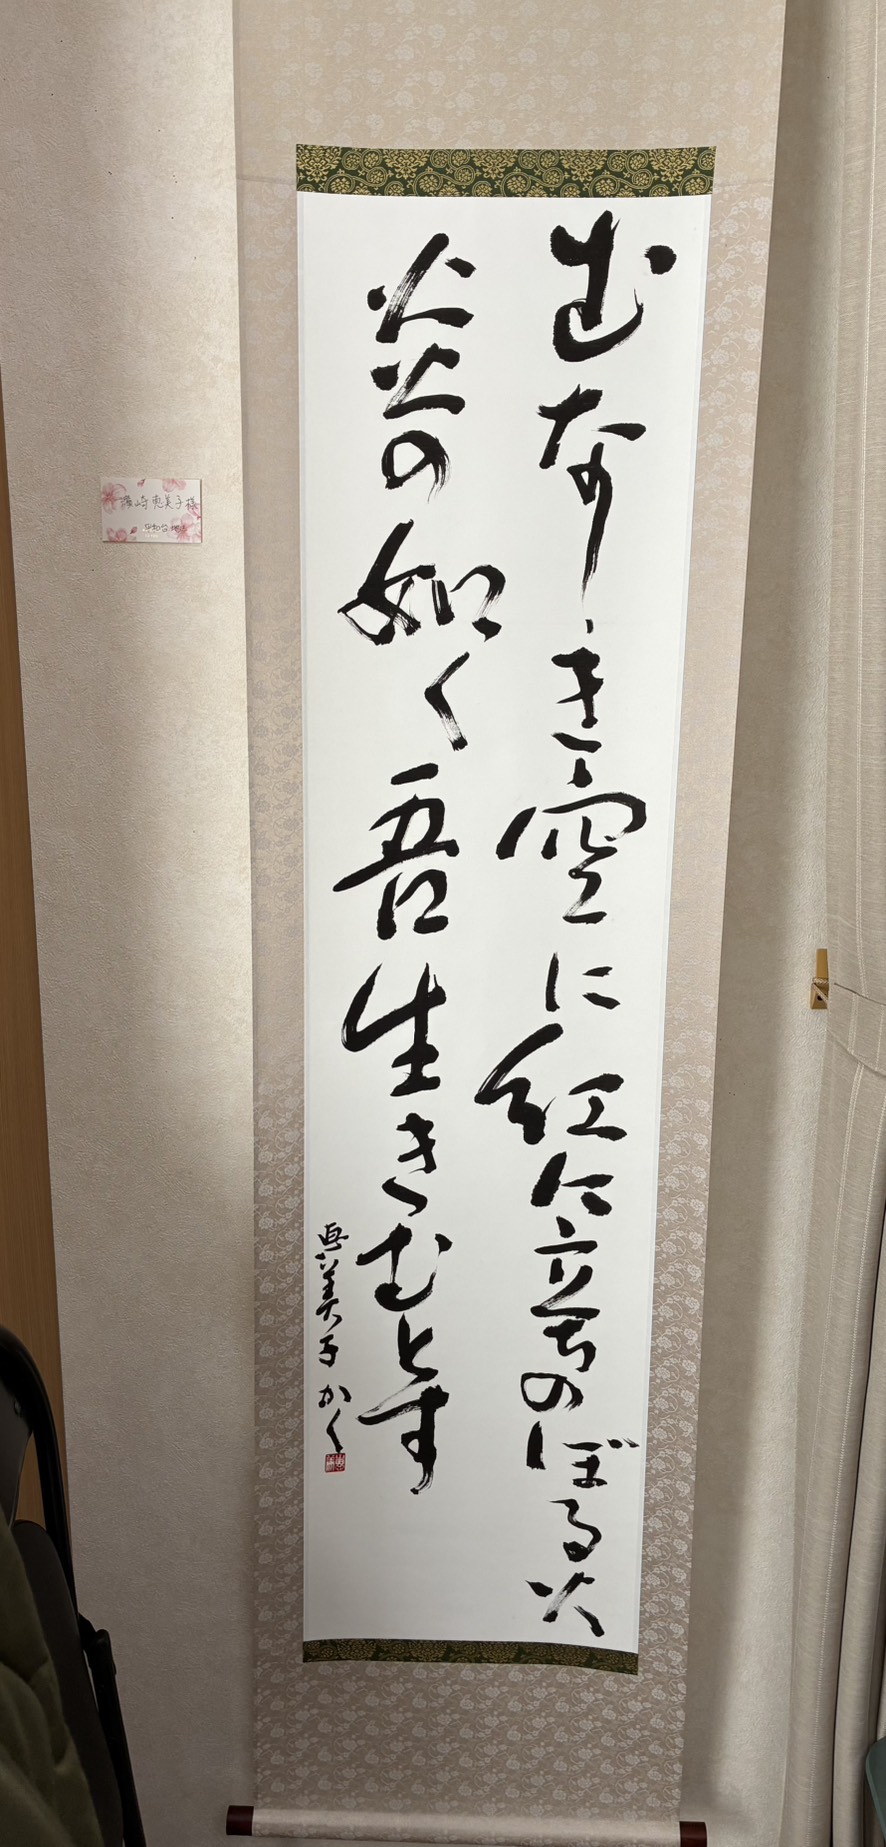 むなしき空に紅に立ちのぼる火
炎の如く吾生きむとす
恵美子かく
崎恵美子様